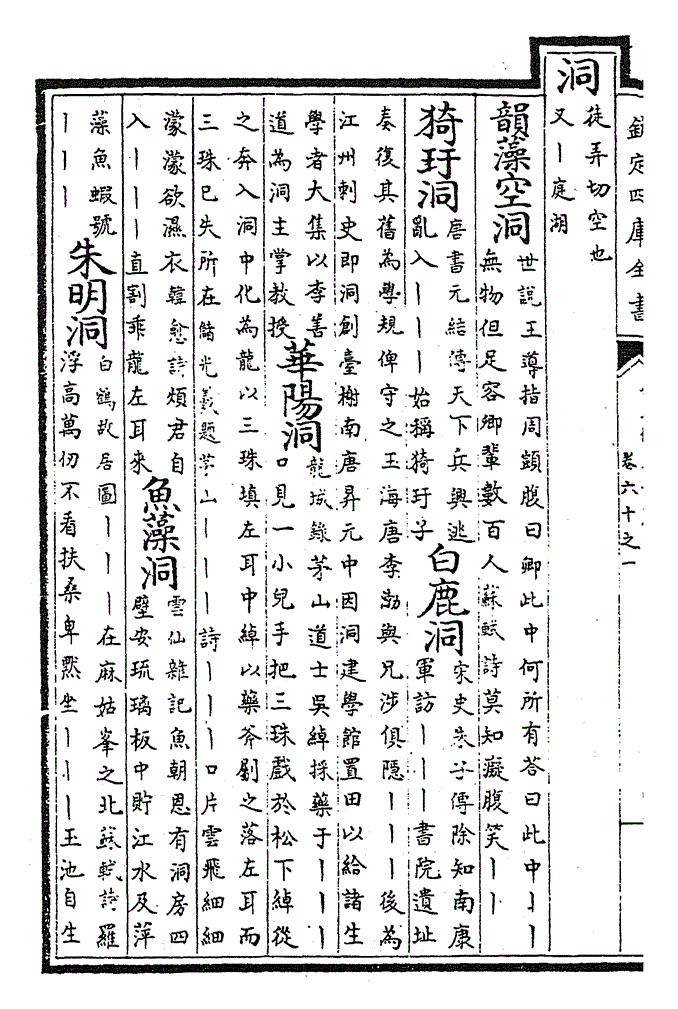 欽定四庫全書
卷六十之一
洞
徒弄切空也
又丨庭湖
韻藻空洞
世說王導指周顗腹曰卿此中何所有答曰此中丨丨
無物但足容卿輩數百人蘇軾詩莫知癡腹笑丨丨
猗玗洞
唐書元結傳天下兵興逃
亂入丨丨丨始稱猗玗子
白鹿洞
宋史朱子傳除知南康
軍訪丨丨丨書院遺址
奏復其舊為學規俾守之玉海唐李渤與兄涉俱隱丨丨丨後為
江州刺史即洞創臺榭南唐昇元中因洞建學館置田以給諸生
學者大集以李善
道為洞主掌教授
華陽洞
龍城錄茅山道士吳綽採藥于丨丨丨
口見一小兒手把三珠戲於松下綽從
之奔入洞中化為龍以三珠填左耳中綽以藥斧劚之落左耳而
三珠已失所在儲光羲題茅山丨丨丨詩丨丨丨口片雲飛細細
濛濛欲濕衣韓愈詩煩君自
入丨丨丨直割乖龍左耳來
魚藻洞
雲仙雜記魚朝恩有洞房四
壁安琉璃板中貯江水及萍
藻魚蝦號
丨丨丨
朱明洞
白鶴故居圖丨丨丨在麻姑峯之北蘇軾詩羅
浮高萬仞不看扶桑卑黙坐丨丨丨玉池自生